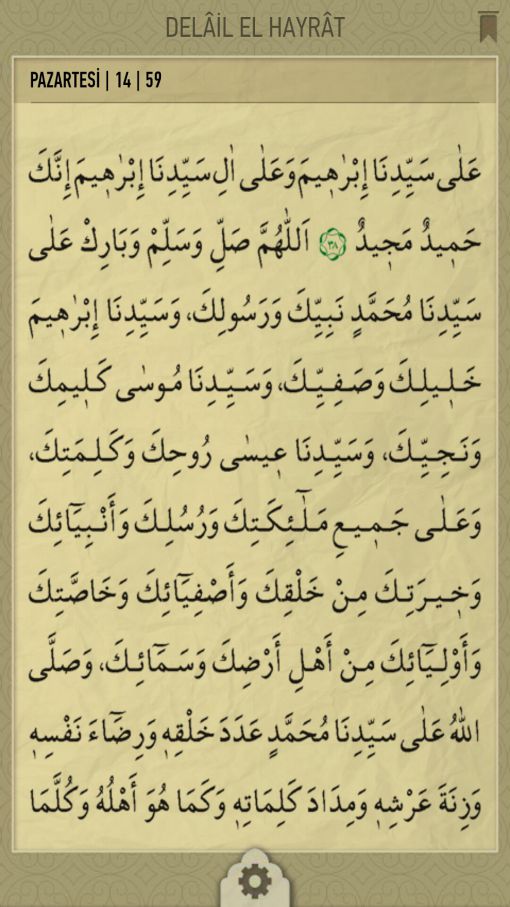 DELÂİL EL HAYRÂT
PAZARTESİ | 14 | 59
عَلٰى سَيِّدِنَا إِبْرٰهِيمَ وَعَلٰى اٰلِ سَيِّدِنَا إِبْرٰهِيمَ إِنَّكَ
حَمِيدٌ مَجِيدٌ ﴿٣٨﴾ اَللّٰهُمَّ صَلِّ وَسَلِّمْ وَبَارِكْ عَلٰى
سَيِّدِنَا مُحَمَّدٍ نَبِيِّكَ وَرَسُولِكَ، وَسَيِّدِنَا إِبْرٰهِيمَ
خَلِيلِكَ وَصَفِيِّكَ، وَسَيِّدِنَا مُوسٰى كَلِيمِكَ
وَنَجِيِّكَ، وَسَيِّدِنَا عِيسٰى رُوحِكَ وَكَلِمَتِكَ،
وَعَلٰى جَمِيعِ مَلٰٓئِكَتِكَ وَرُسُلِكَ وَأَنْبِيَٓائِكَ
وَخِيرَتِكَ مِنْ خَلْقِكَ وَأَصْفِيَٓائِكَ وَخَاصَّتِكَ
وَأَوْلِيَٓائِكَ مِنْ أَهْلِ أَرْضِكَ وَسَمَٓائِكَ، وَصَلَّى
اللّٰهُ عَلٰى سَيِّدِنَا مُحَمَّدٍ عَدَدَ خَلْقِهٖ وَرِضَٓاءَ نَفْسِهٖ
وَزِنَةَ عَرْشِهٖ وَمِدَادَ كَلِمَاتِهٖ وَكَمَا هُوَ أَهْلُهُ وَكُلَّمَا